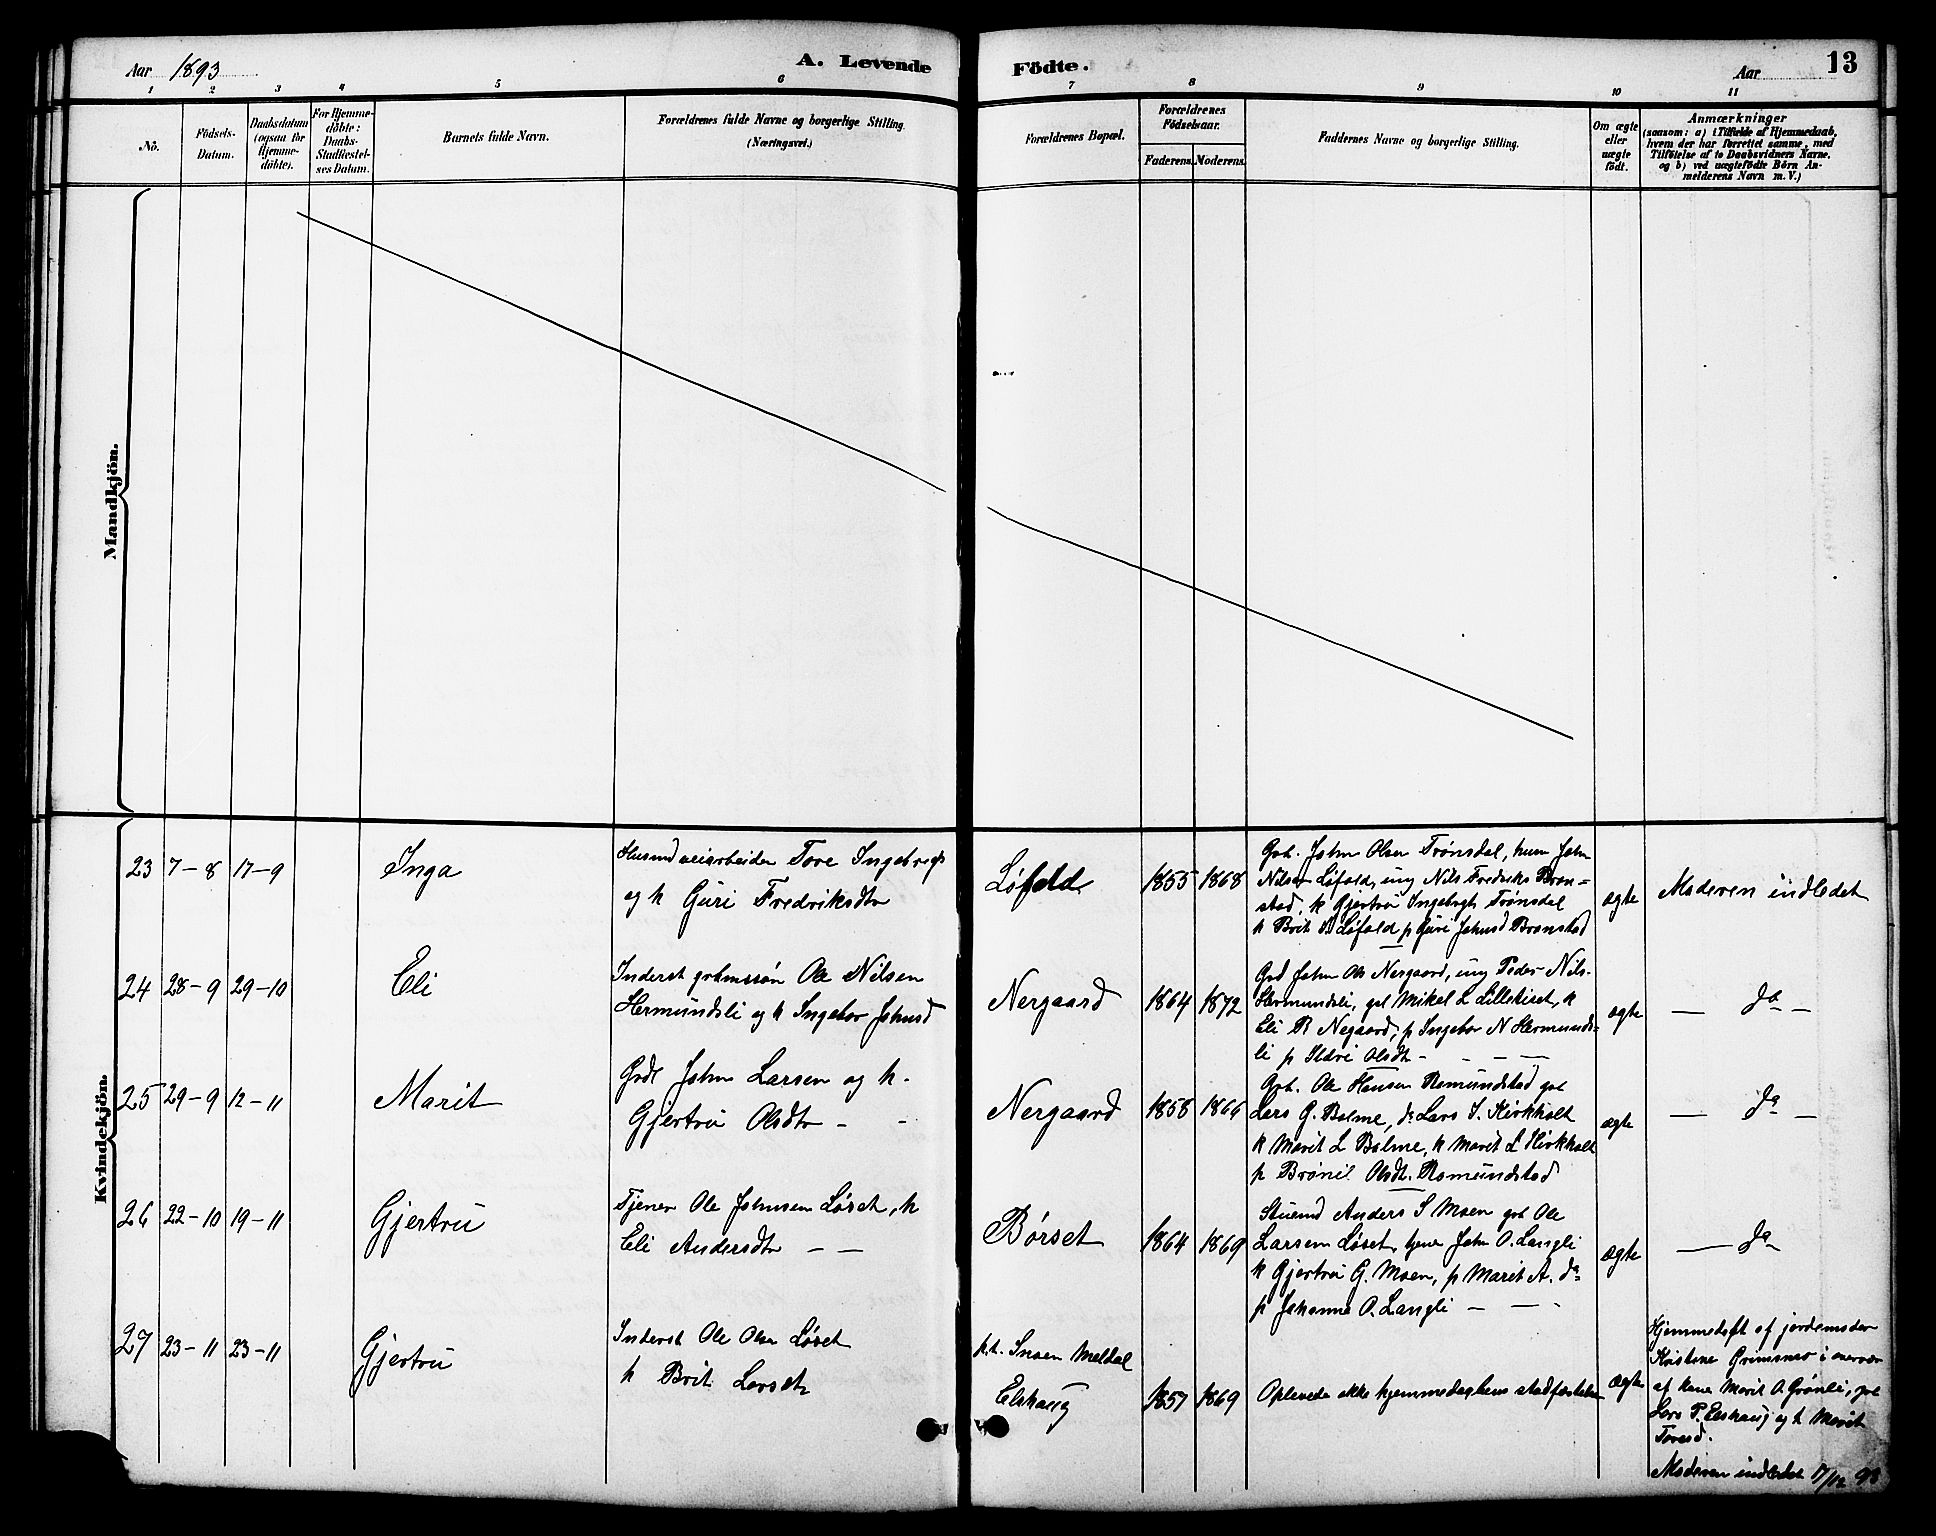 Aar 1893
A. Levende
Födte.
Aar
13
1 2 3 4 5 6 7 8 9 10 11
No.
Födsels-
Datum.
Daabsdatum
(ogsaa for
Hjemme-
döbte).
For Hjemme-
döbte:
Daabs-
Stadfæstel-
ses Datum.
Barnets fulde Navn.
Forældrenes fulde Navne og borgerlige Stilling.
(Næringsvei.)
Forældrenes Bopæl.
Forældrenes
Födselsaar.
Faderens. Moderens.
Faddernes Navne og borgerlige Stilling.
Om ægte
eller
uægte
födt.
Anmærkninger
(saasom: a) i Tilfælde af Hjemmedaab,
hvem der har forrettet samme, med
Tilföielse af to Daabsvidners Navne,
og b) ved uægtefödte Börn An-
melderens Navn m. V.)
Mandkjön.
Kvindekjön.
23 7-8 17-9
Inga
Husmd veiarbeider Tore Ingebrigts
og k Guri Fredriksdtr
Løfald
1855 1868
Grb. John Olsen Trønsdal, husm John
Nilsen Løfald, ung Nils Fredriks Bron=
stad, k Gjertru Ingebrgt Trønsdal
k Brit Løfald p Guri Johnsd Bronstad
ægte
Moderen indledet
24 28-9 29-10
Eli
Inderst grbmssøn Ole Nilsen
Hermundsli og k Ingebor Johnsd
Nergaard
1864 1872
Grd John Ols Nergaard, ung Peder Nils-
Hermundsli, gsl Mikel L Lilleliset, k
Eli R Negaard, p Ingebor N Hermunds=
li p Ildri Olsdtr - - - -
ægte
— Do —
25 29-9 12-11
Marit
John Larsen og k.
Gjertru Olsdtr - -
Nergaard
1858 1866
Grb. Ole Hansen Romundstad gsl
Lars G. Bolme, do Lars I. Kirkholt
k Marit L Bolme, k Marit L Kirkholt
p Brønil Olsdt. Romundstad
ægte
— Do —
26 22-10 19-11
Gjertru
Tjener Ole Johnsen Løset, k
Eli Andersdtr — —
Børset
1864 1869
Anders S Moen gsl Ole
Larsen Løset, tjener John O. Langli
k Gjertru G. Moen, p Marit A. do
p Johanna O. Langli - — -
ægte
— Do
27 23-11 23-11
Gjertru
Inderst Ole Olsen Løset
k Brit Larsdtr
p.t. Snoen Meldal
Elshaug
1857 1869
Oplevede ikke hjemmedaabens stadfæstelse
ægte
Hjemmedøbt af jordemoder
Kristine Grimsmo i overvær
af kone Marit O. Grønli, gsl
Lars P. Elshaug og k Marit
Toresd.
Moderen indledet 17/12 93